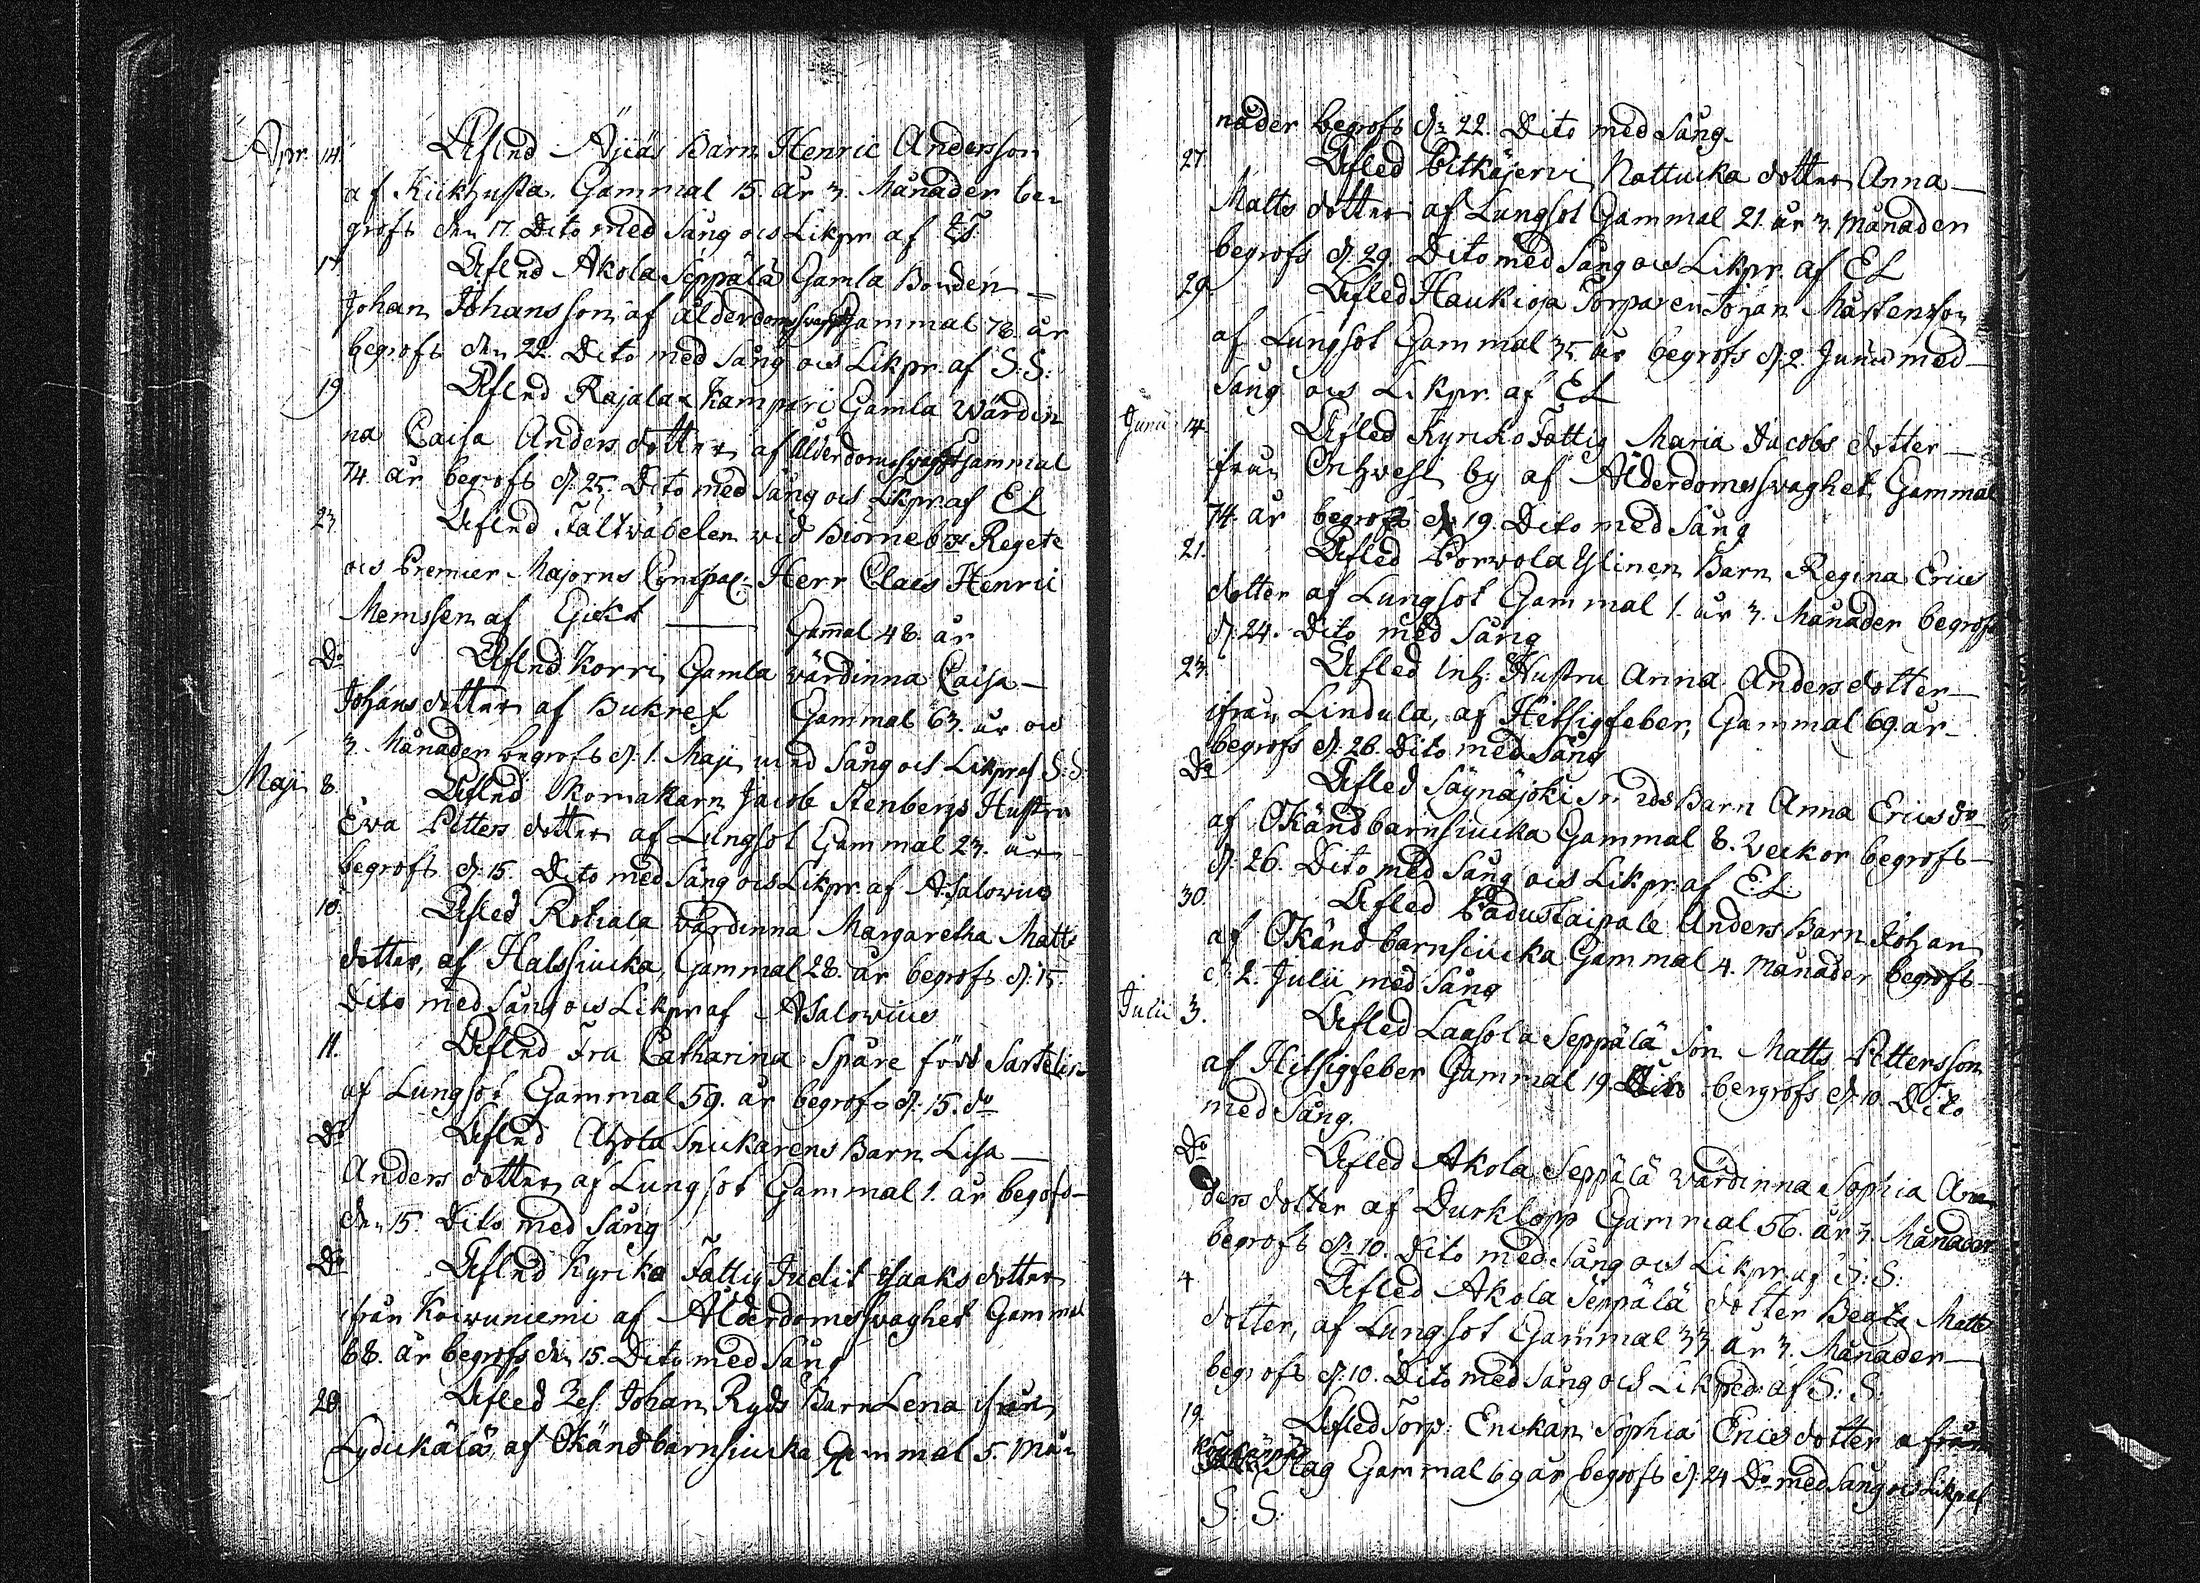 Apr. 14. Afled Äjiäs Barn Henric Andersson
af Kickhusta Gammal 15. år 3. Månader be=
grofs den 17. Dito med Sång ocs Likpr. af
17. Afled Akola Seppälä Gamla Bonden
Johan Johansson af ålderdomssvaght Gammal 78. år
begrofs den 22. Dito med Sång ocs Likpr. af S. S.
19 Afled Rajala Kampari Gamla Wärdin
na Caisa Anders dotter af ålderdomssvaght Gammal
74 år begrofs d. 25. Dito med Sång ocs Likpr. af EL
23 Afled Fältväbelen wid Biörneb:gs Regete
ocs Premier Majorns Compac: Herr Claes Henric
Memssen af Gickt Gam̄al 48. år
Do Afled Korri Gamla wärdinna Caisa
Johans dotter af Bukref Gammal 63. år ocs
3. Månader begrofs d. 1. Maji med Sång ocs Likpr af S. S.
Maji 8. Afled Skomakarn Jacob Stenbergs Hustru
Eva Petters dotter af Lungsot Gammal 23. år
begrofs d. 15. Dito med Sång ocs Likpr. af A. Salovius
10. Afled Rokala wärdinna Margaretha Matts
dotter, af Halssiucka Gammal 28. år begrofs d. 15.
Dito med Sång ocs Likpr af A Salovius
11. Afled Fru Catharina Spåre född Sartelia
af Lungsot Gammal 59. år begrofs d. 15. do
Do Afled Ahola Snickarens Barn Lisa
Anders dotter af Lungsot Gammal 1. år begofs
den 15. Dito med Sång
Do Afled Kyrko Fattig Judit Isaaks dotter
ifrån Koivuniemi af Ålderdomssvaghet Gammal
68. år begrofs den 15. Dito med Sång
20. Afled Johan Ryds Barn Lena ifrån
Lydickälä af Okänd barnsiucka Gammal 5. Må=
nader begrofs d: 22. Dito med Sång
27. Afled Pitkäjervi Nattucka dotter Anna
Matts dotter af Lungsot Gammal 21. år 3. Månader
begrofs d. 29. Dito med Sång ocs Likpr. af EL
29. Afled Haukioja Torparen Johan Mårtensson
af Lungsot Gammal 35. år begrofs d. 2. Junii med
Sång ocs Likpr. af EL
Junii 14. Afled Kyrko Fattig Maria Jacobs dotter
ifrån by af Ålderdomssvaghet, Gammal
74. år begrofs d. 19. Dito med Sång
21. Afled Porvola Ylinen Barn Regina Erics
dotter af Lungsot Gammal 1. år 3. Månader begrofs
d. 24. Dito med Sång
23. Afled Inh. Hustru Anna Anders dotter
ifrån Lindula, af Hitsigfeber, Gammal 69. år
begrofs d. 26. Dito med Sång
Do Afled Säynäjoki Barn Anna Erics do
af Okänd barnsiucka Gammal 8. Veckor begrofs
d. 26. Dito med Sång ocs Likpr. af E. L.
30. Afled Padustaipale Anders Barn Johan
af Okänd barnsiucka Gammal 4. Månader begrofs
d. 2. Julii med Sång
Julii 3. Afled Laasola Seppälä Son Matts Pettersson
af Hitsigfeber Gammal 19. begrofs d. 10. Dito
med Sång.
Do Afled Akola Seppälä wärdinna Sophia An
ders dotter af Durklopp Gammal 56. år 3. Månader
begrofs d: 10. Dito med Sång ocs Likpr. af S: S:
4 Afled Akola Seppälä dotter Beata Matts
dotter, af Lungsot Gammal 33 år 3. Månader
begrofs d. 10. Dito med Sång och Likpred: af S: S:
19. Afled Torp: Enckan Sophia Erics dotter
Slag Gammal 69 år begrofs d. 24 Do med Sång ocs Likpr af
S. S.